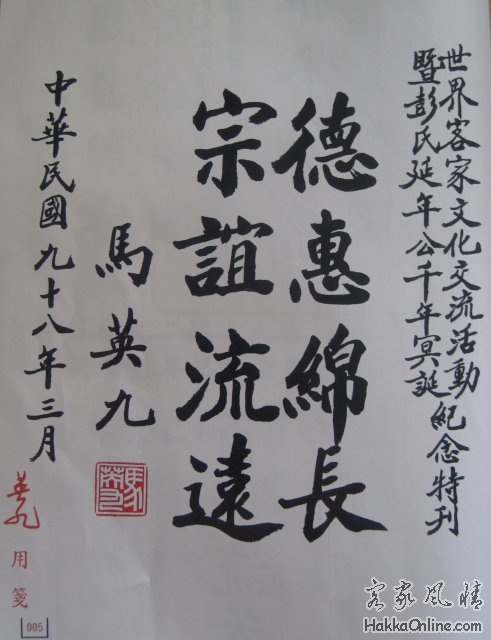 世界客家文化交流活動
暨彭氏延年公千年冥誕紀念特刊
德惠綿長
宗誼流遠
馬英九
中華民國九十八年三月
英九
用箋
005
客家風情
HakkaOnline.com